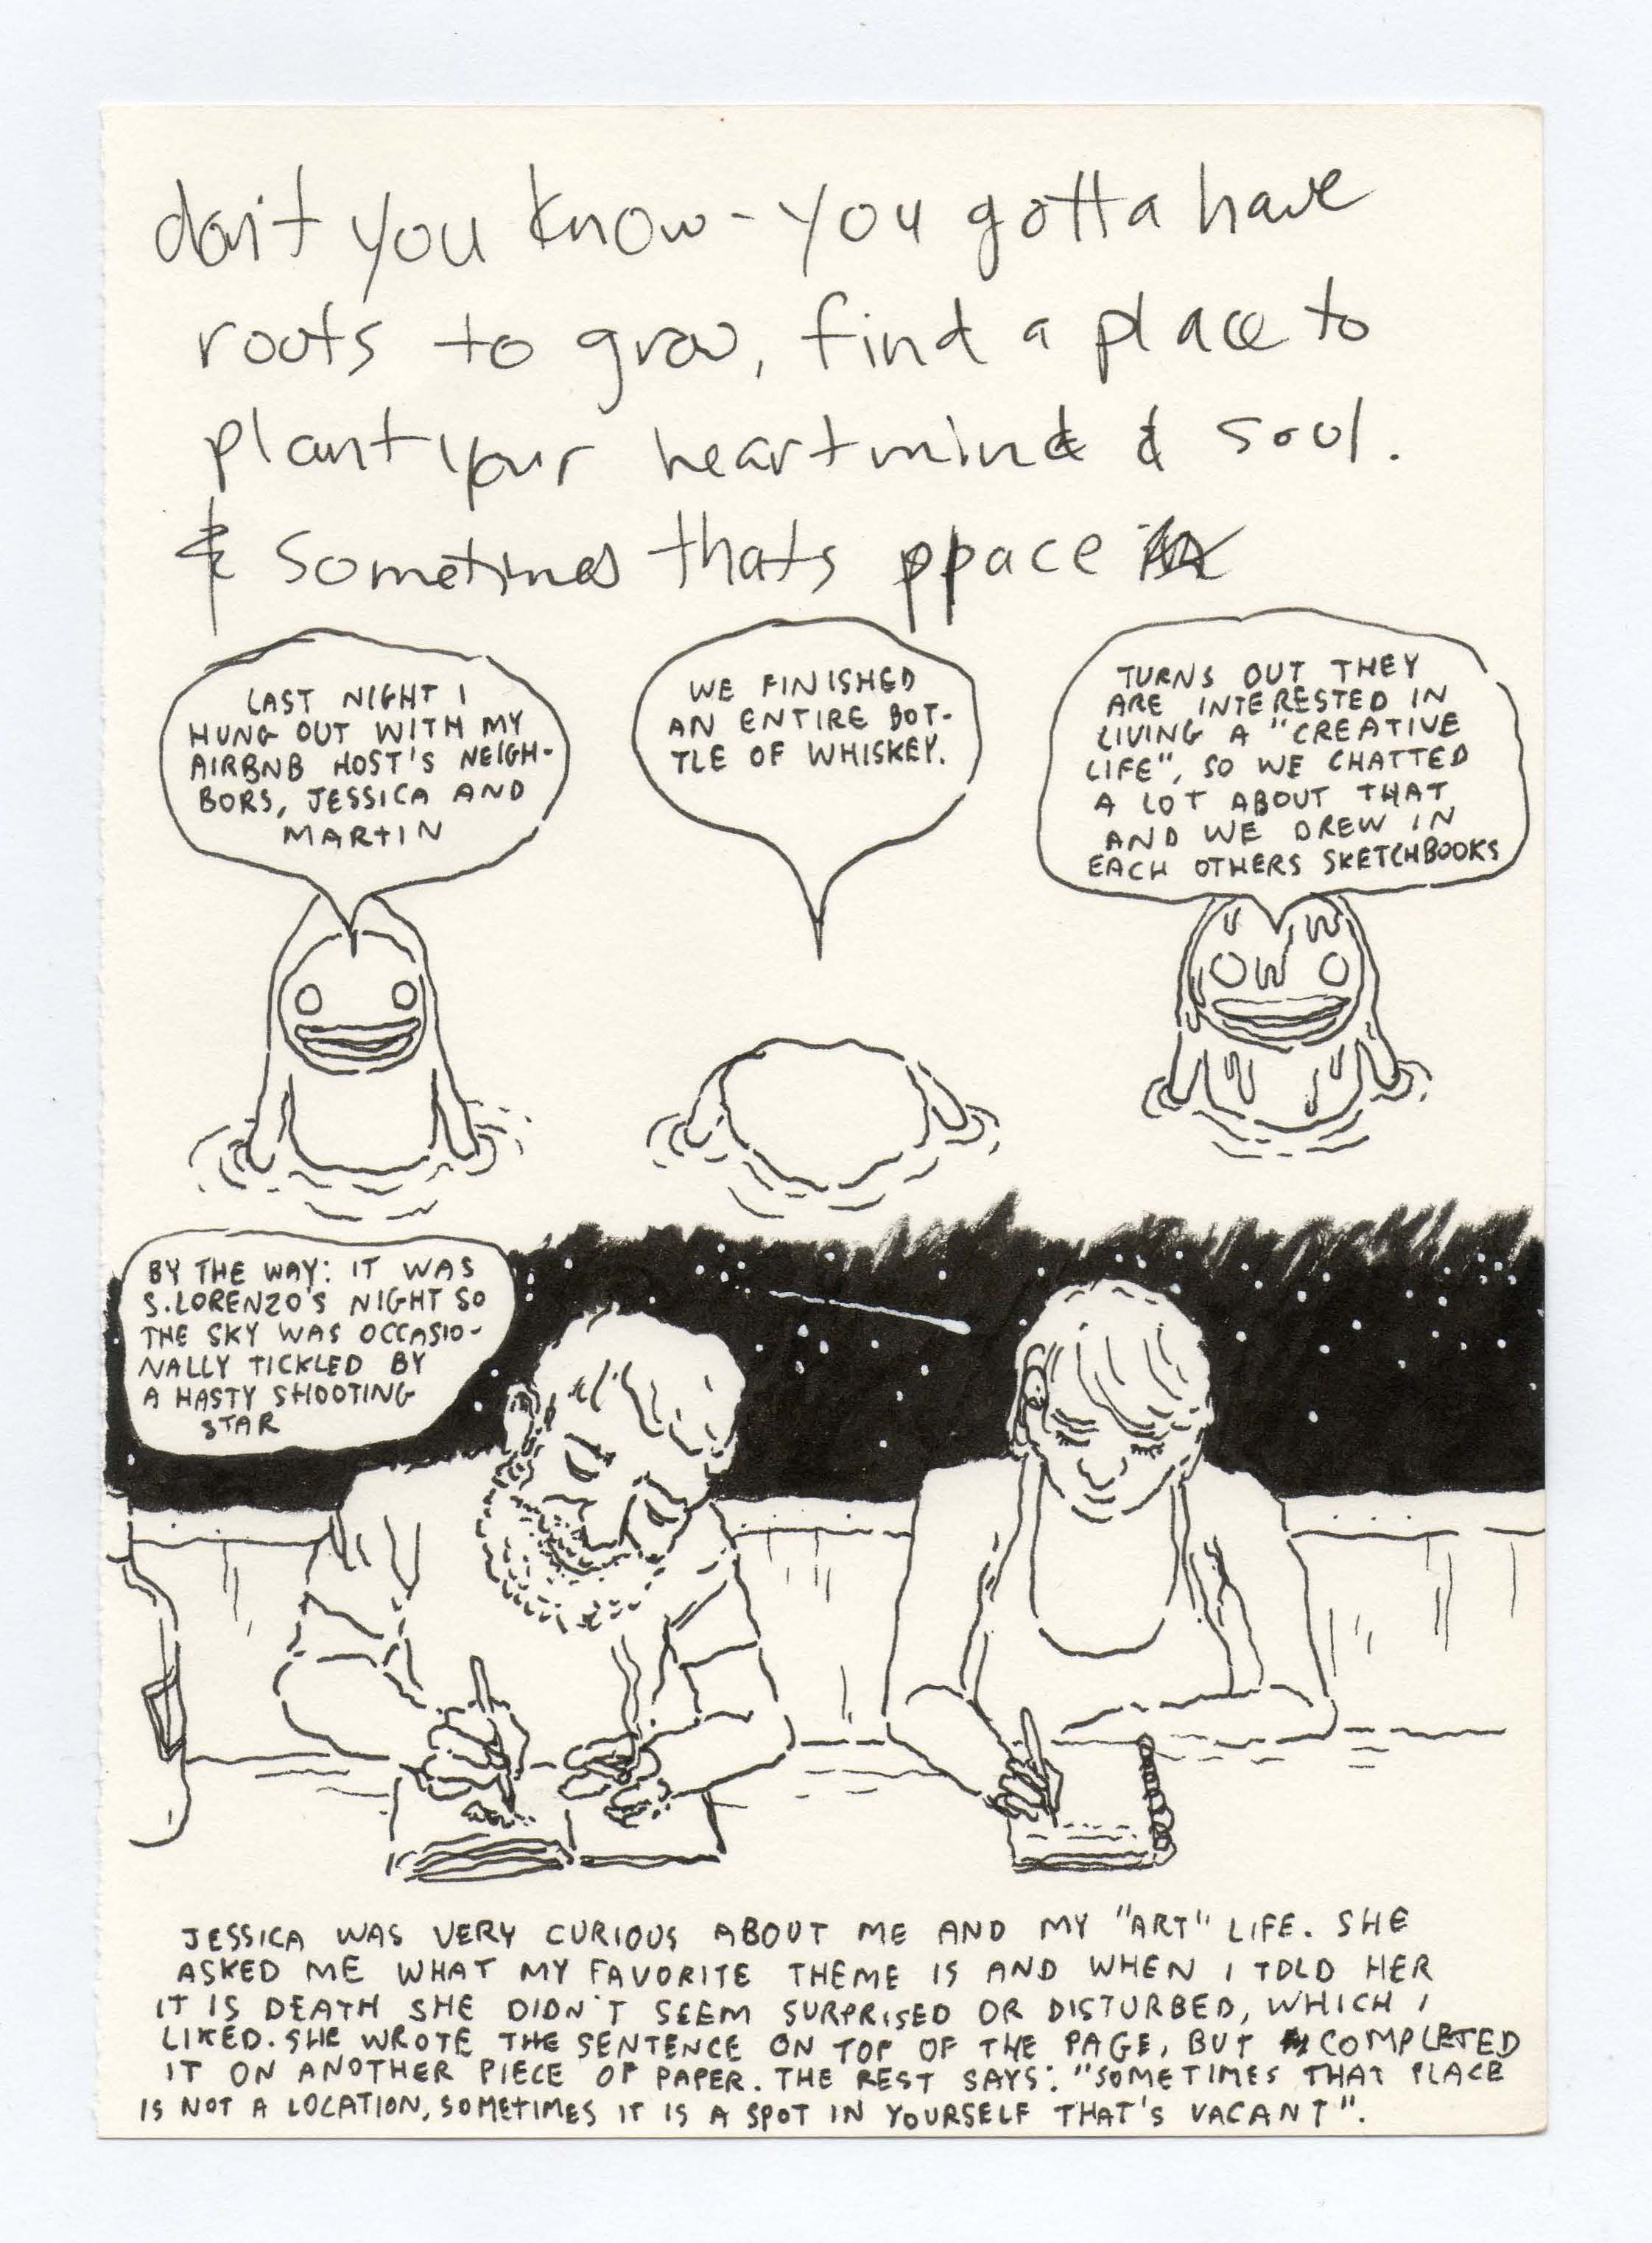 don't you know - you gotta have
roots to grow, find a place to
plant your heart mind & soul.
& sometimes thats ppace
LAST NIGHT I
HUNG OUT WITH MY
AIRBNB HOST'S NEIGH-
BORS, JESSICA AND
MARTIN
WE FINISHED
AN ENTIRE BOT-
TLE OF WHISKEY.
TURNS OUT THEY
ARE INTERESTED IN
LIVING A "CREATIVE
LIFE", SO WE CHATTED
A LOT ABOUT THAT
AND WE DREW IN
EACH OTHERS SKETCHBOOKS
BY THE WAY: IT WAS
S.LORENZO'S NIGHT SO
THE SKY WAS OCCASIO-
NALLY TICKLED BY
A HASTY SHOOTING
STAR
JESSICA WAS VERY CURIOUS ABOUT ME AND MY "ART" LIFE. SHE
ASKED ME WHAT MY FAVORITE THEME IS AND WHEN I TOLD HER
IT IS DEATH SHE DIDN'T SEEM SURPRISED OR DISTURBED, WHICH I
LIKED. SHE WROTE THE SENTENCE ON TOP OF THE PAGE, BUT COMPLETED
IT ON ANOTHER PIECE OF PAPER. THE REST SAYS: "SOMETIMES THAT PLACE
IS NOT A LOCATION, SOMETIMES IT IS A SPOT IN YOURSELF THAT'S VACANT".